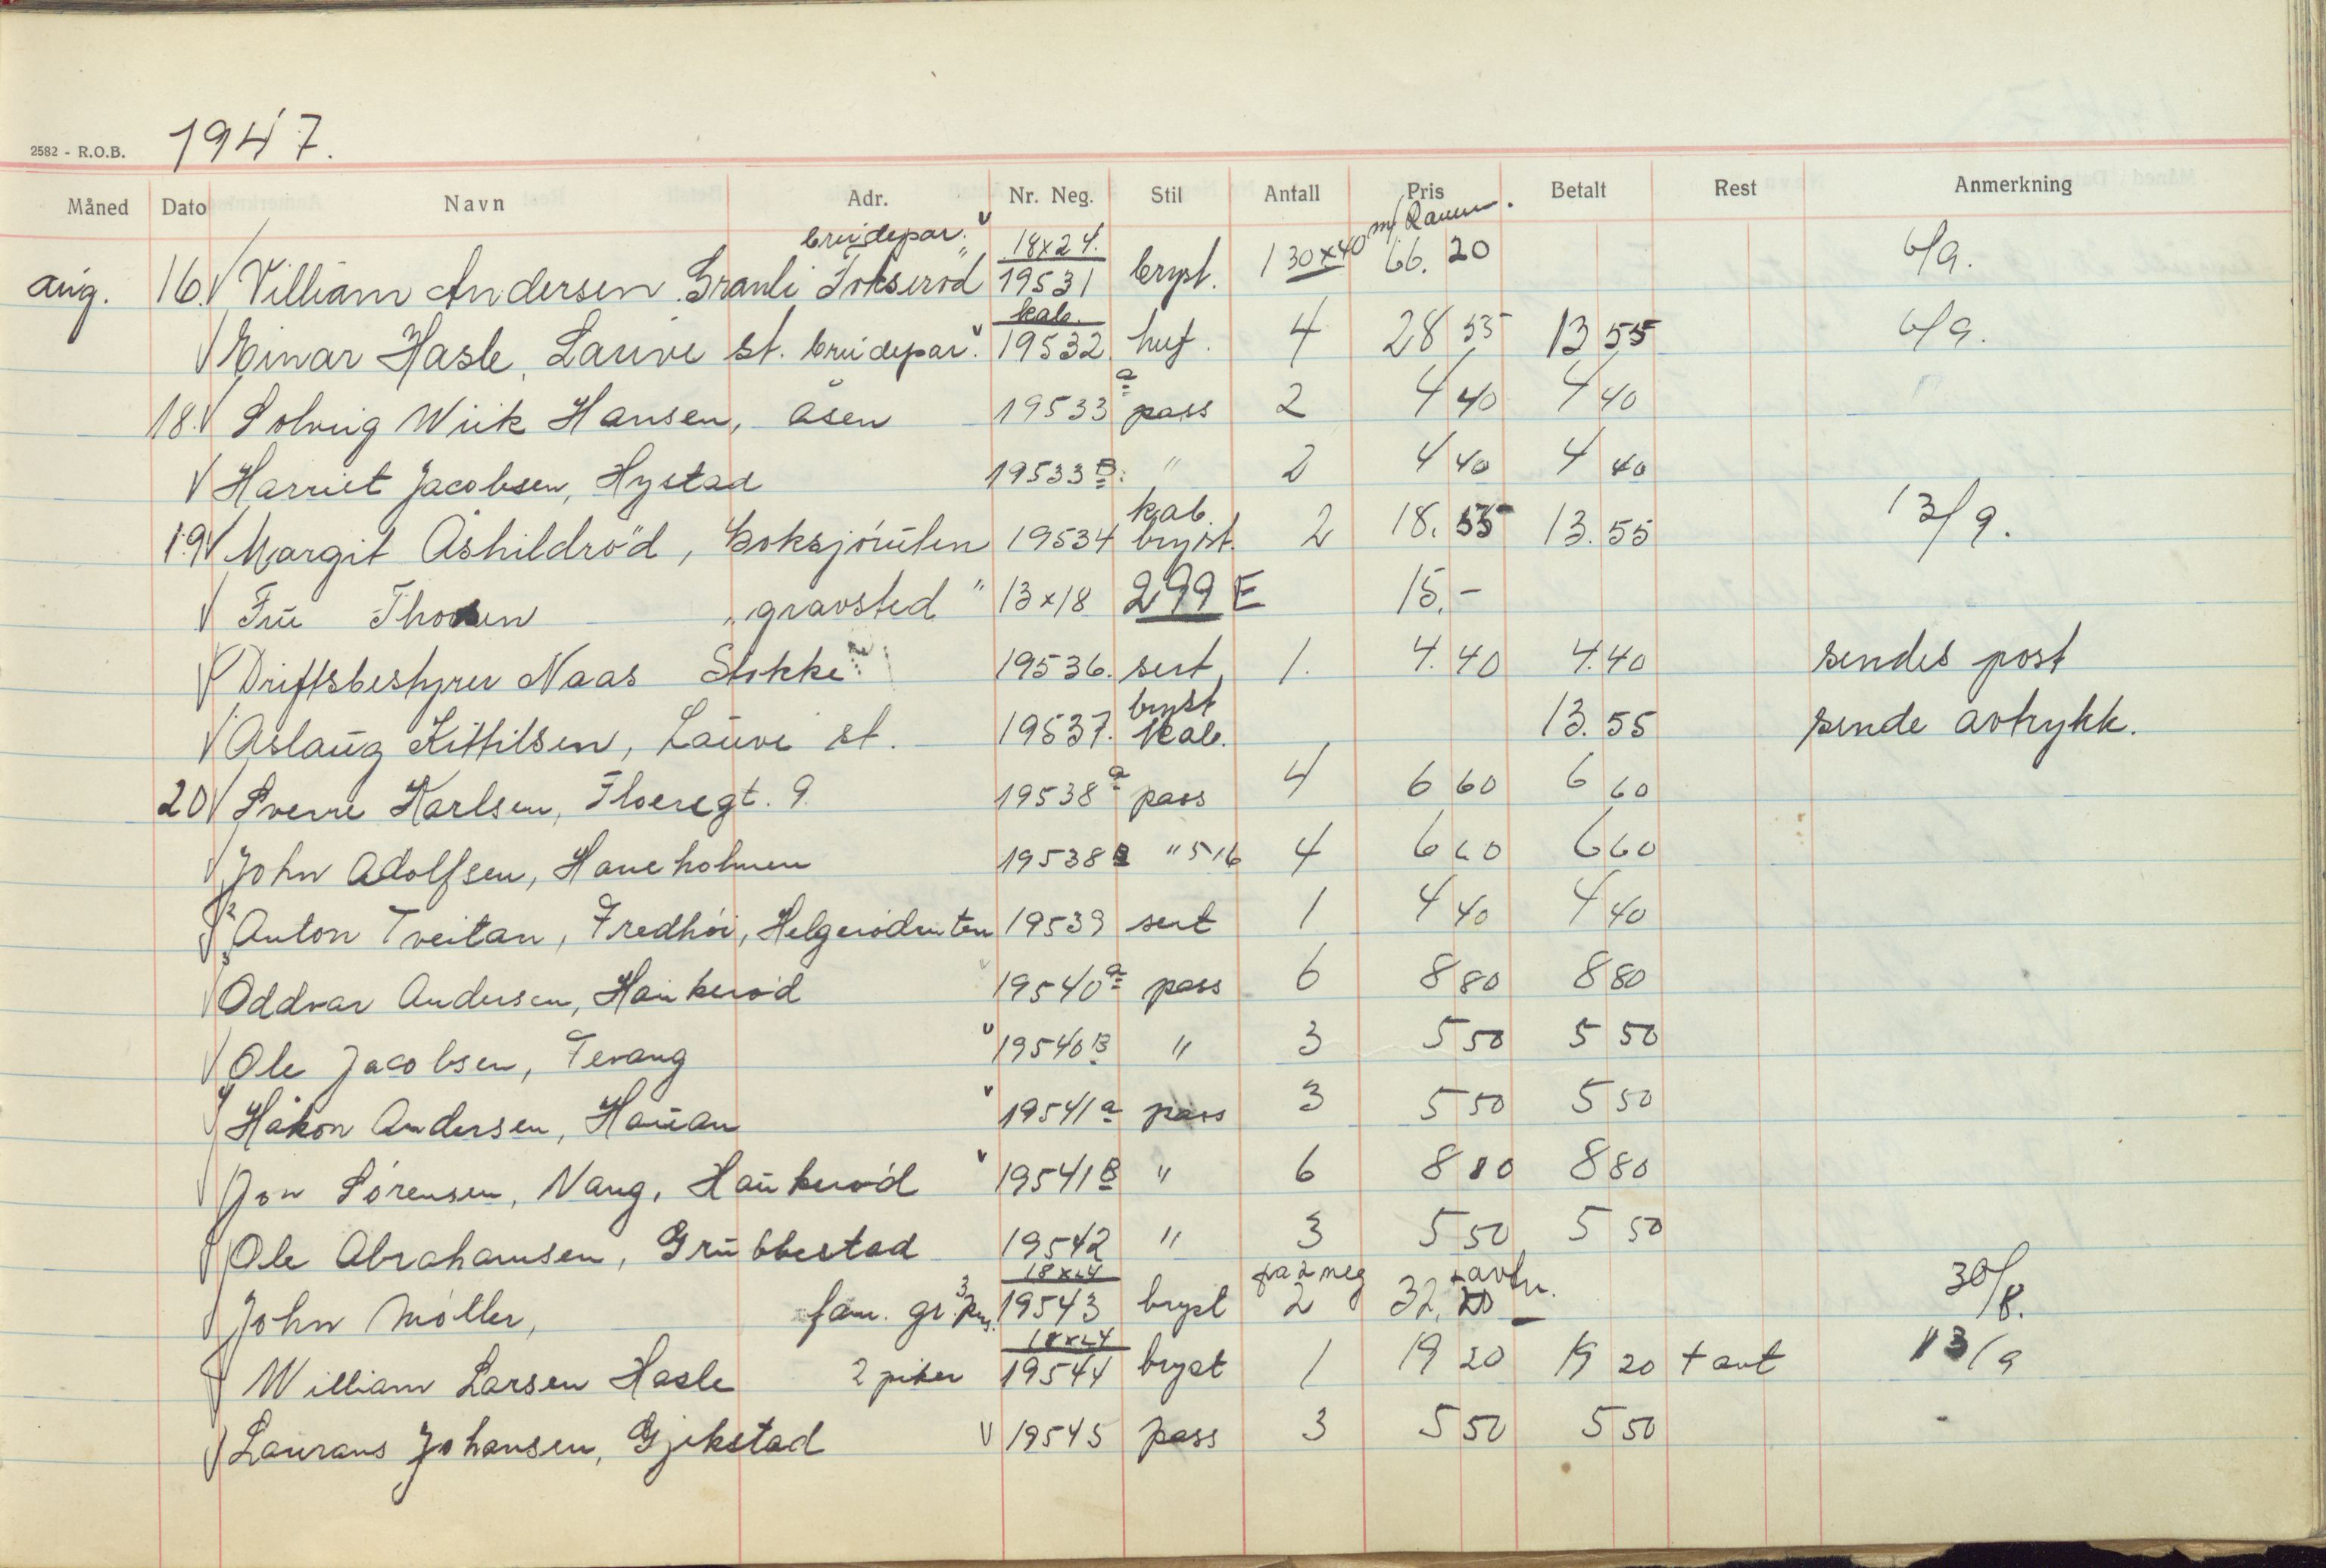 1947.
2582 - R.O.B.
Måned Dato Navn Adr. Nr. Neg. Stil Antall Pris Betalt Rest Anmerkning
brudepar. 18x24. m/ Ramm.
aug. 16. Villiam Andersen Granli Fokserød 19531 bryst. 1 30x40 66. 20 6/9.
kab.
Einar Hasle, Lauve st. brudepar. 19532 huf. 4 28 55 13 55 6/9.
18. Solveig Wiik Hansen, Åsen 19533 a pass 2 4 40 4 40
Harriet Jacobsen, Hystad 19533 B. " 2 4 40 4 40
kab
19 Margit Åshildrød, Boksjøruten 19534 bryst. 2 18. 55 13. 55 13/9.
Fru Thorsen "gravsted" 13x18 299 E 15.-
Driftsbestyrer Naas Stokke 19536. sert 1. 4. 40 4.40 sendes post
bryst
Aslaug Kittilsen, Lauve st. 19537. kab. 13. 55 sende avtrykk.
20 Sverre Karlsen, Floeregt. 9. 19538 a pass 4 6 60 6 60
John Adolfsen, Haneholmen 19538 B " 516 4 6 60 6 60
2 Anton Tveitan, Fredhøi, Helgerødruten 19539 sert 1 4 40 4 40
3 Oddvar Andersen, Haukerød 19540 a pass 6 8 80 8 80
Ole Jacobsen, Tevang 19540 B " 3 5 50 5 50
4 Håkon Andersen, Hauan 19541 a pass 3 5 50 5 50
Jon Sørensen, Nang, Haukerød 19541 B " 6 8 80 8 80
Ole Abrahamsen, Grubbestad 19542 " 3 5 50 5 50
18x24 fra 2 neg + avtr.
John Møller, fam. gr. 3 pers. 19543 bryst 2 32. 20 30/8.
18x24
William Larsen Hasle 2 piker 19544 bryst 1 19 20 19 20 + avt 13/9
Laurans Johansen, Gjekstad 19545 pass 3 5 50 5 50 -